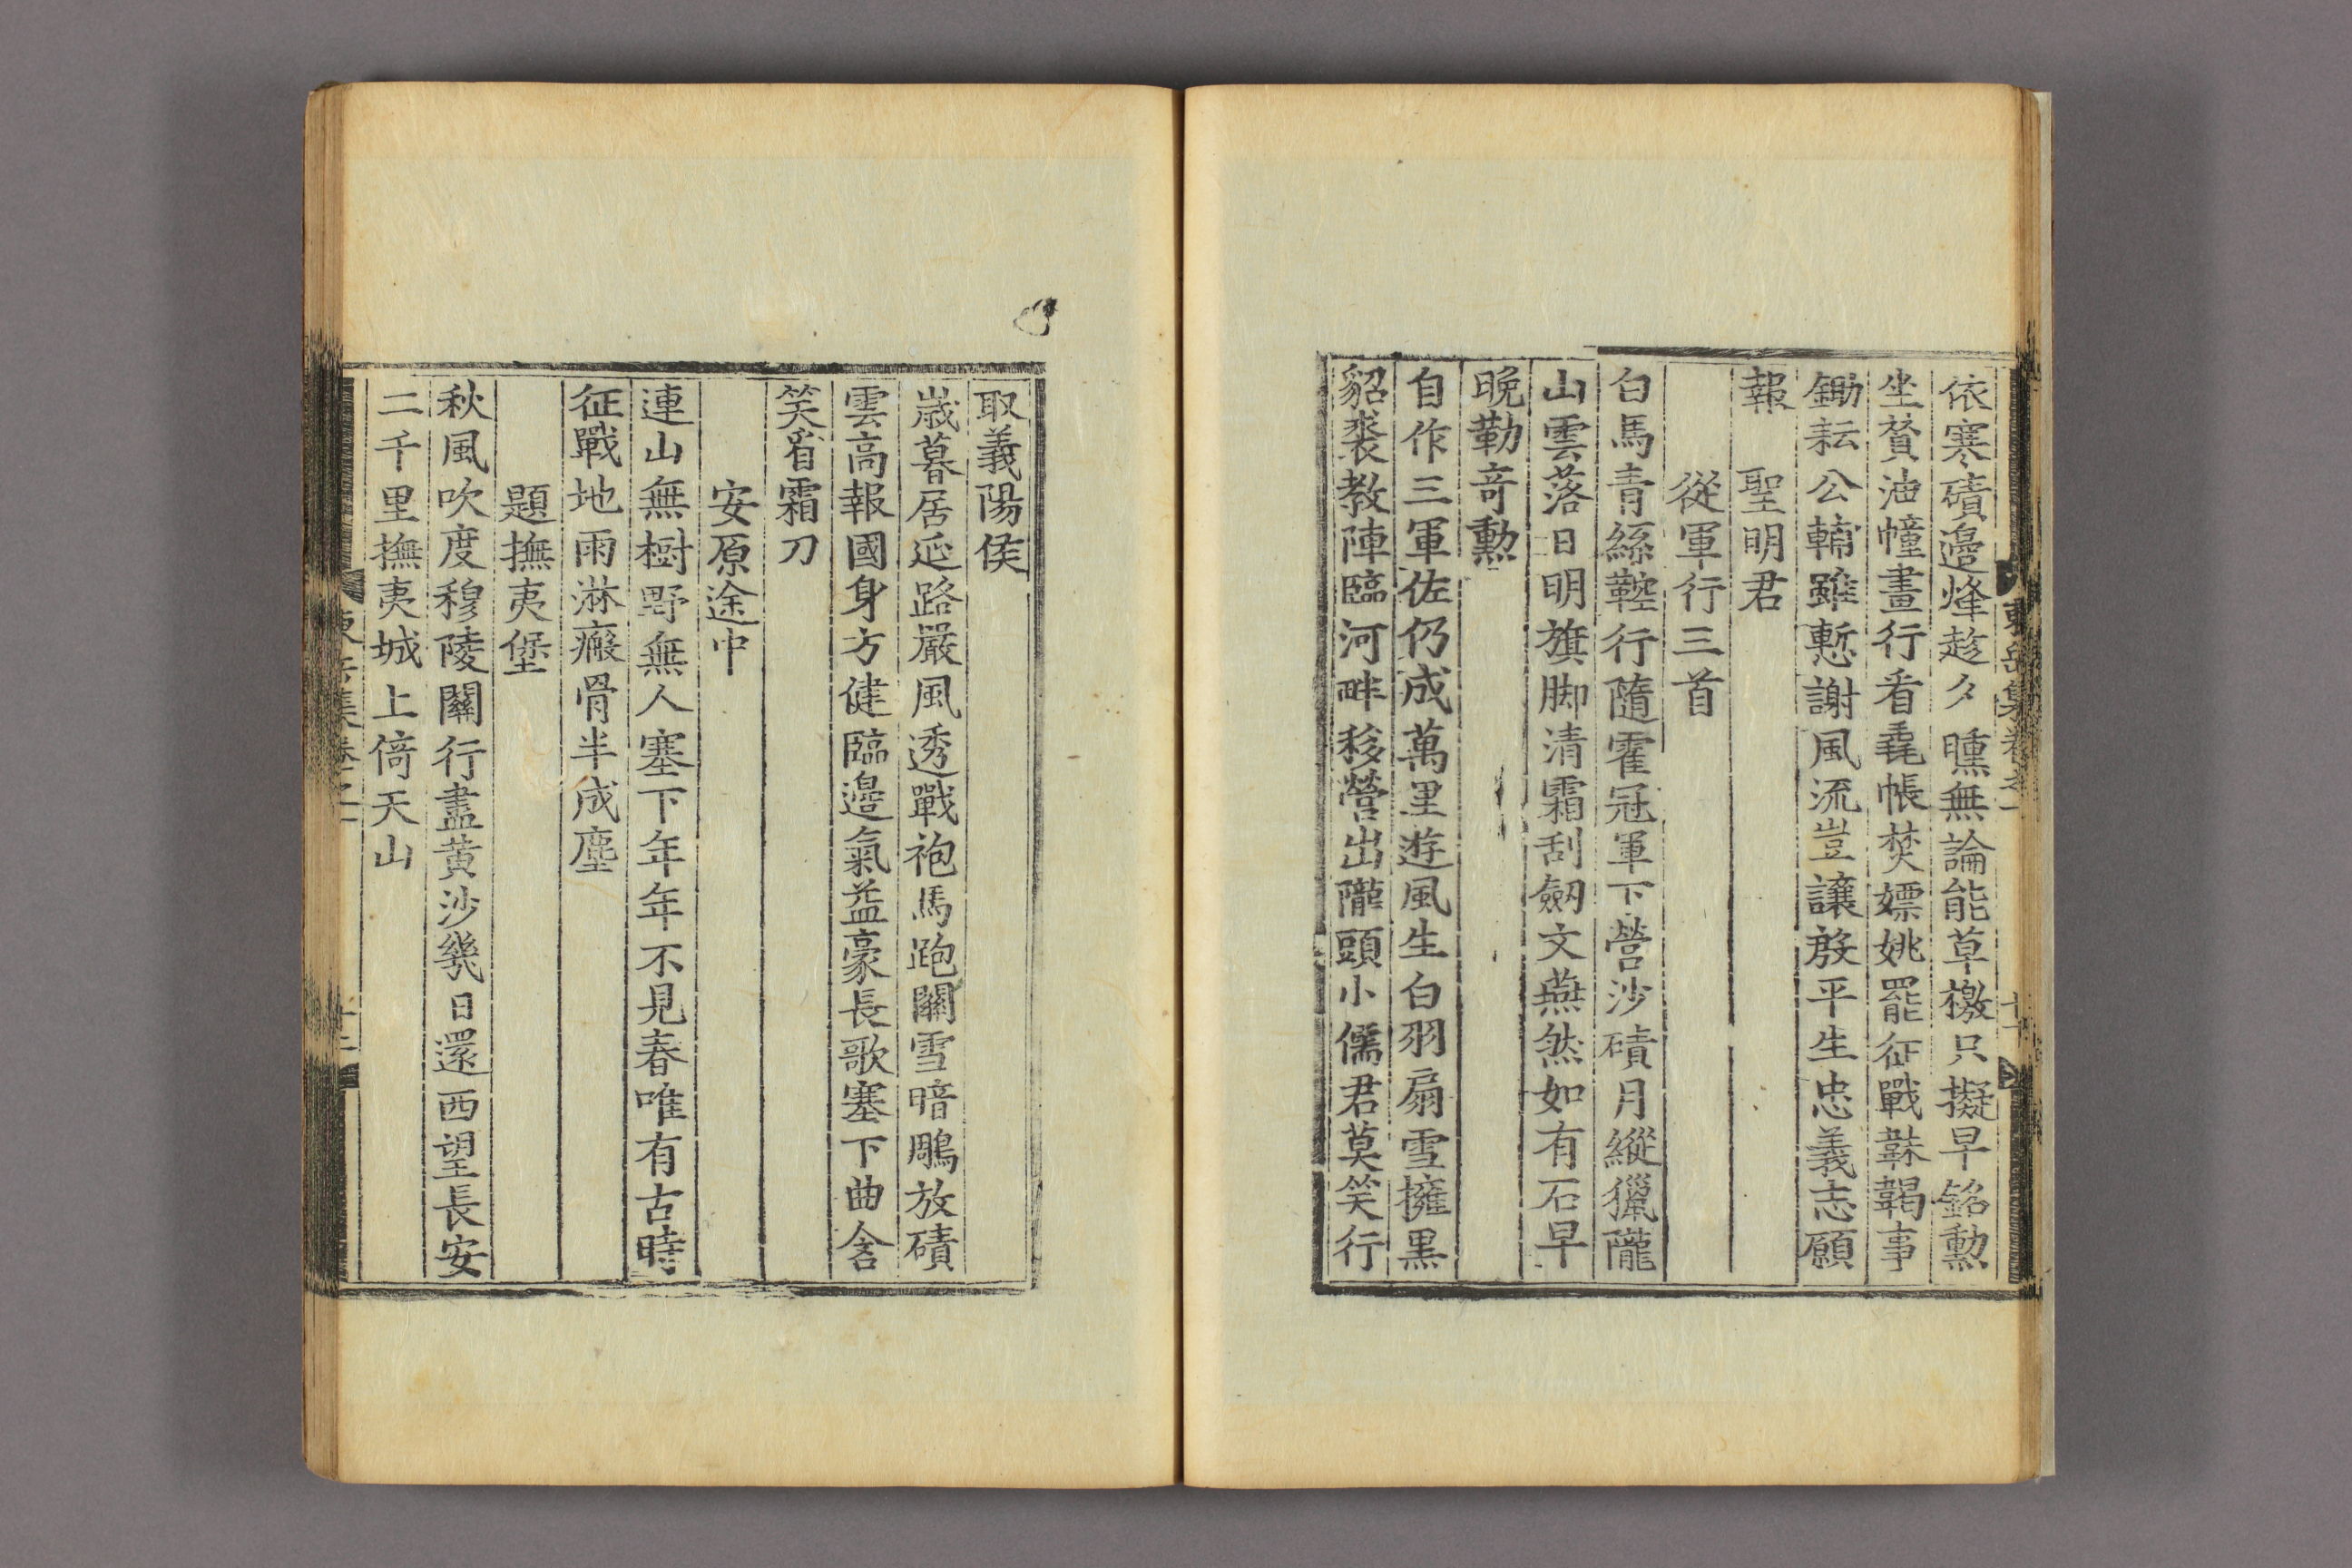 依寒磧邉烽趁夕曛無論能草檄只擬早銘勲
坐賛油幢畫行看毳帳焚嫖姚罷征戰韎韐事
鋤耘公輔雖慙謝風流豈讓殷平生忠義志願
報　聖明君
從軍行三首
白馬青絲鞚行隨霍冠軍下營沙磧月縱獵隴
山雲落日明旗脚清霜刮劒文燕然如有石早
晩勒竒勲
自作三軍佐仍成萬里遊風生白羽扇雪擁黒
貂裘教陣臨河畔移營出隴頭小儒君莫笑行
取義陽侯
歳暮居延路嚴風透戰袍馬跑關雪暗鵰放磧
雲高報國身方健臨邉氣益豪長歌塞下曲含
笑看霜刀
安原途中
連山無樹野無人塞下年年不見春唯有古時
征戰地雨淋瘢骨半成塵
題撫夷堡
秋風吹度穆陵關行盡黄沙幾日還西望長安
二千里撫夷城上倚天山